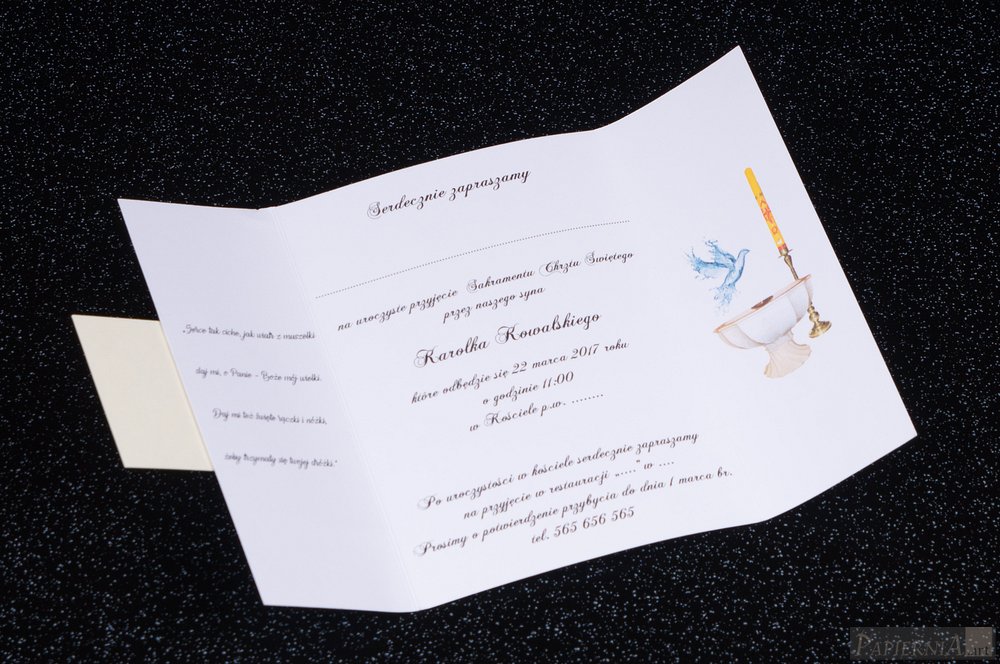 „Serce tak ciche, jak wiatr z muszelki
daj mi, o Panie - Boże mój wielki.
Daj mi też święte rączki i nóżki,
żeby trzymały się twojej dróżki."
Serdecznie zapraszamy
na uroczyste przyjęcie Sakramentu Chrztu Świętego
przez naszego syna
Karolka Kowalskiego
które odbędzie się 22 marca 2017 roku
o godzinie 11:00
w Kościele p.w. ........
Po uroczystości w kościele serdecznie zapraszamy
na przyjęcie w restauracji „....” w ....
Prosimy o potwierdzenie przybycia do dnia 1 marca br.
tel. 565 656 565
PAPIERNIA.art